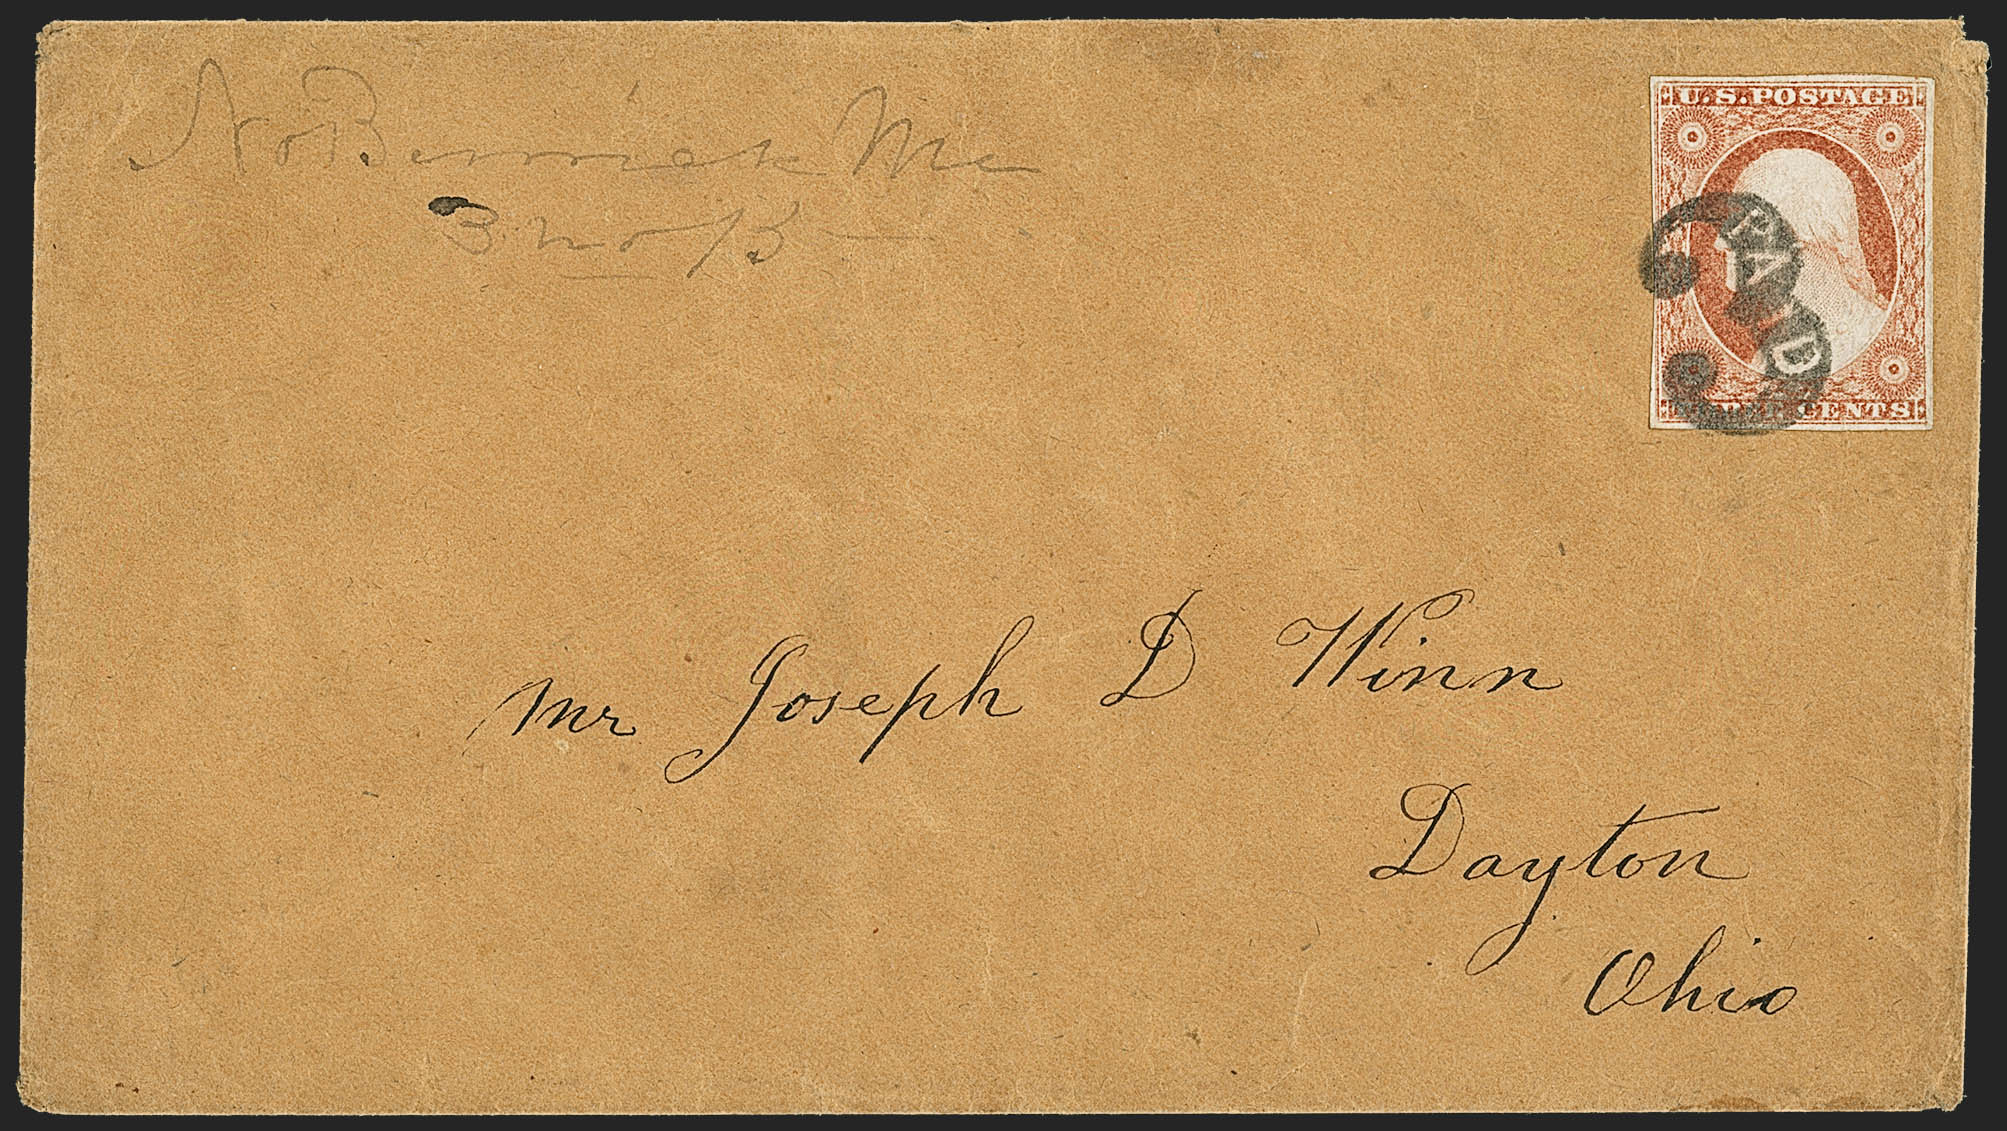 No Berwick Me
U.S. POSTAGE
PAID
THREE CENTS
Mr Joseph D Winn
Dayton
Ohio